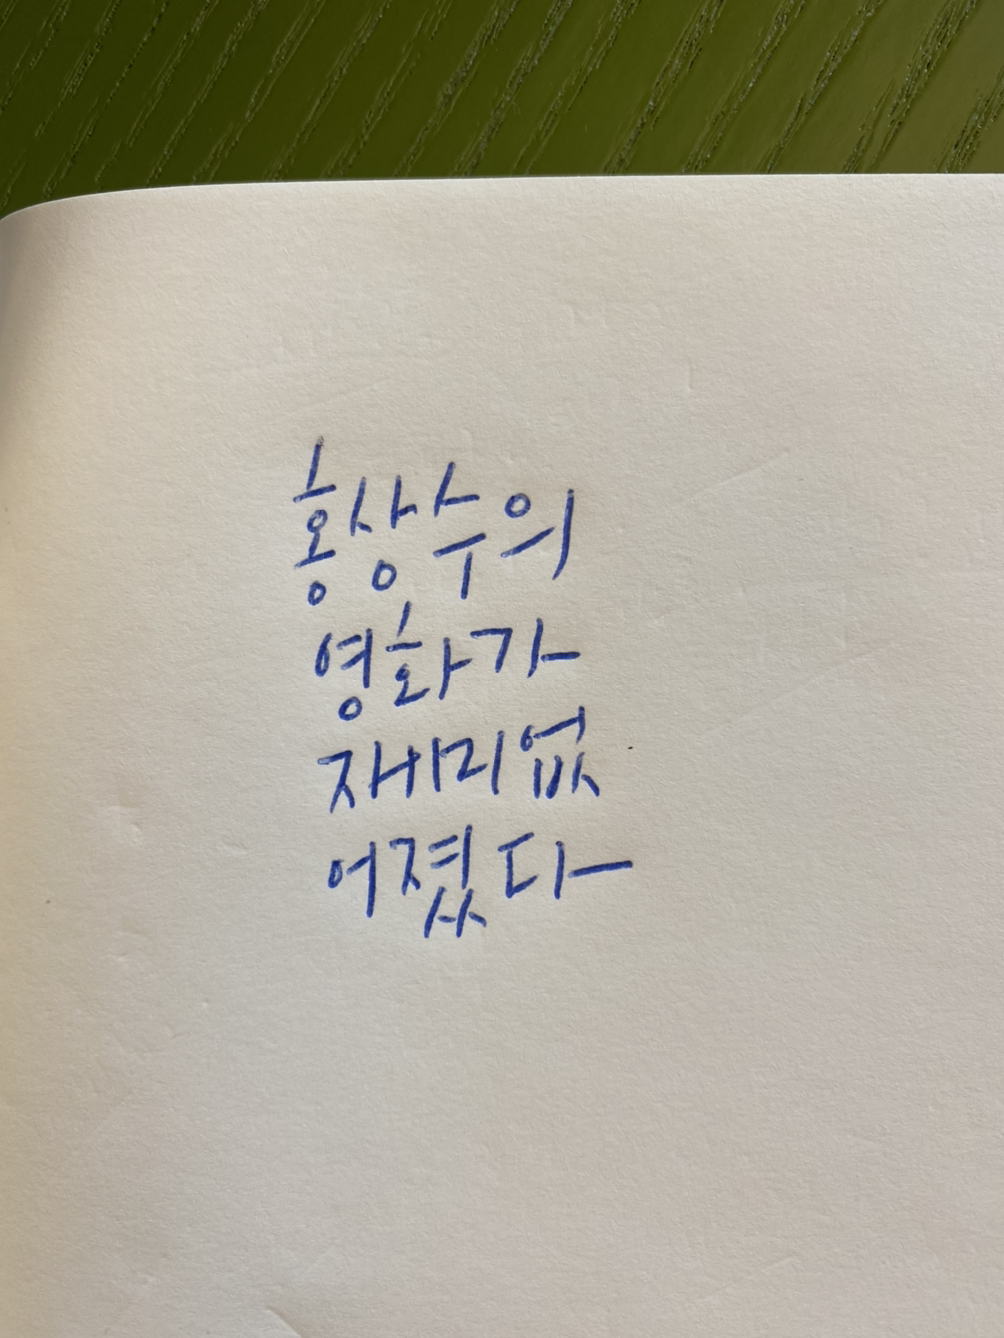 홍상수의
영화가
재미없
어졌다